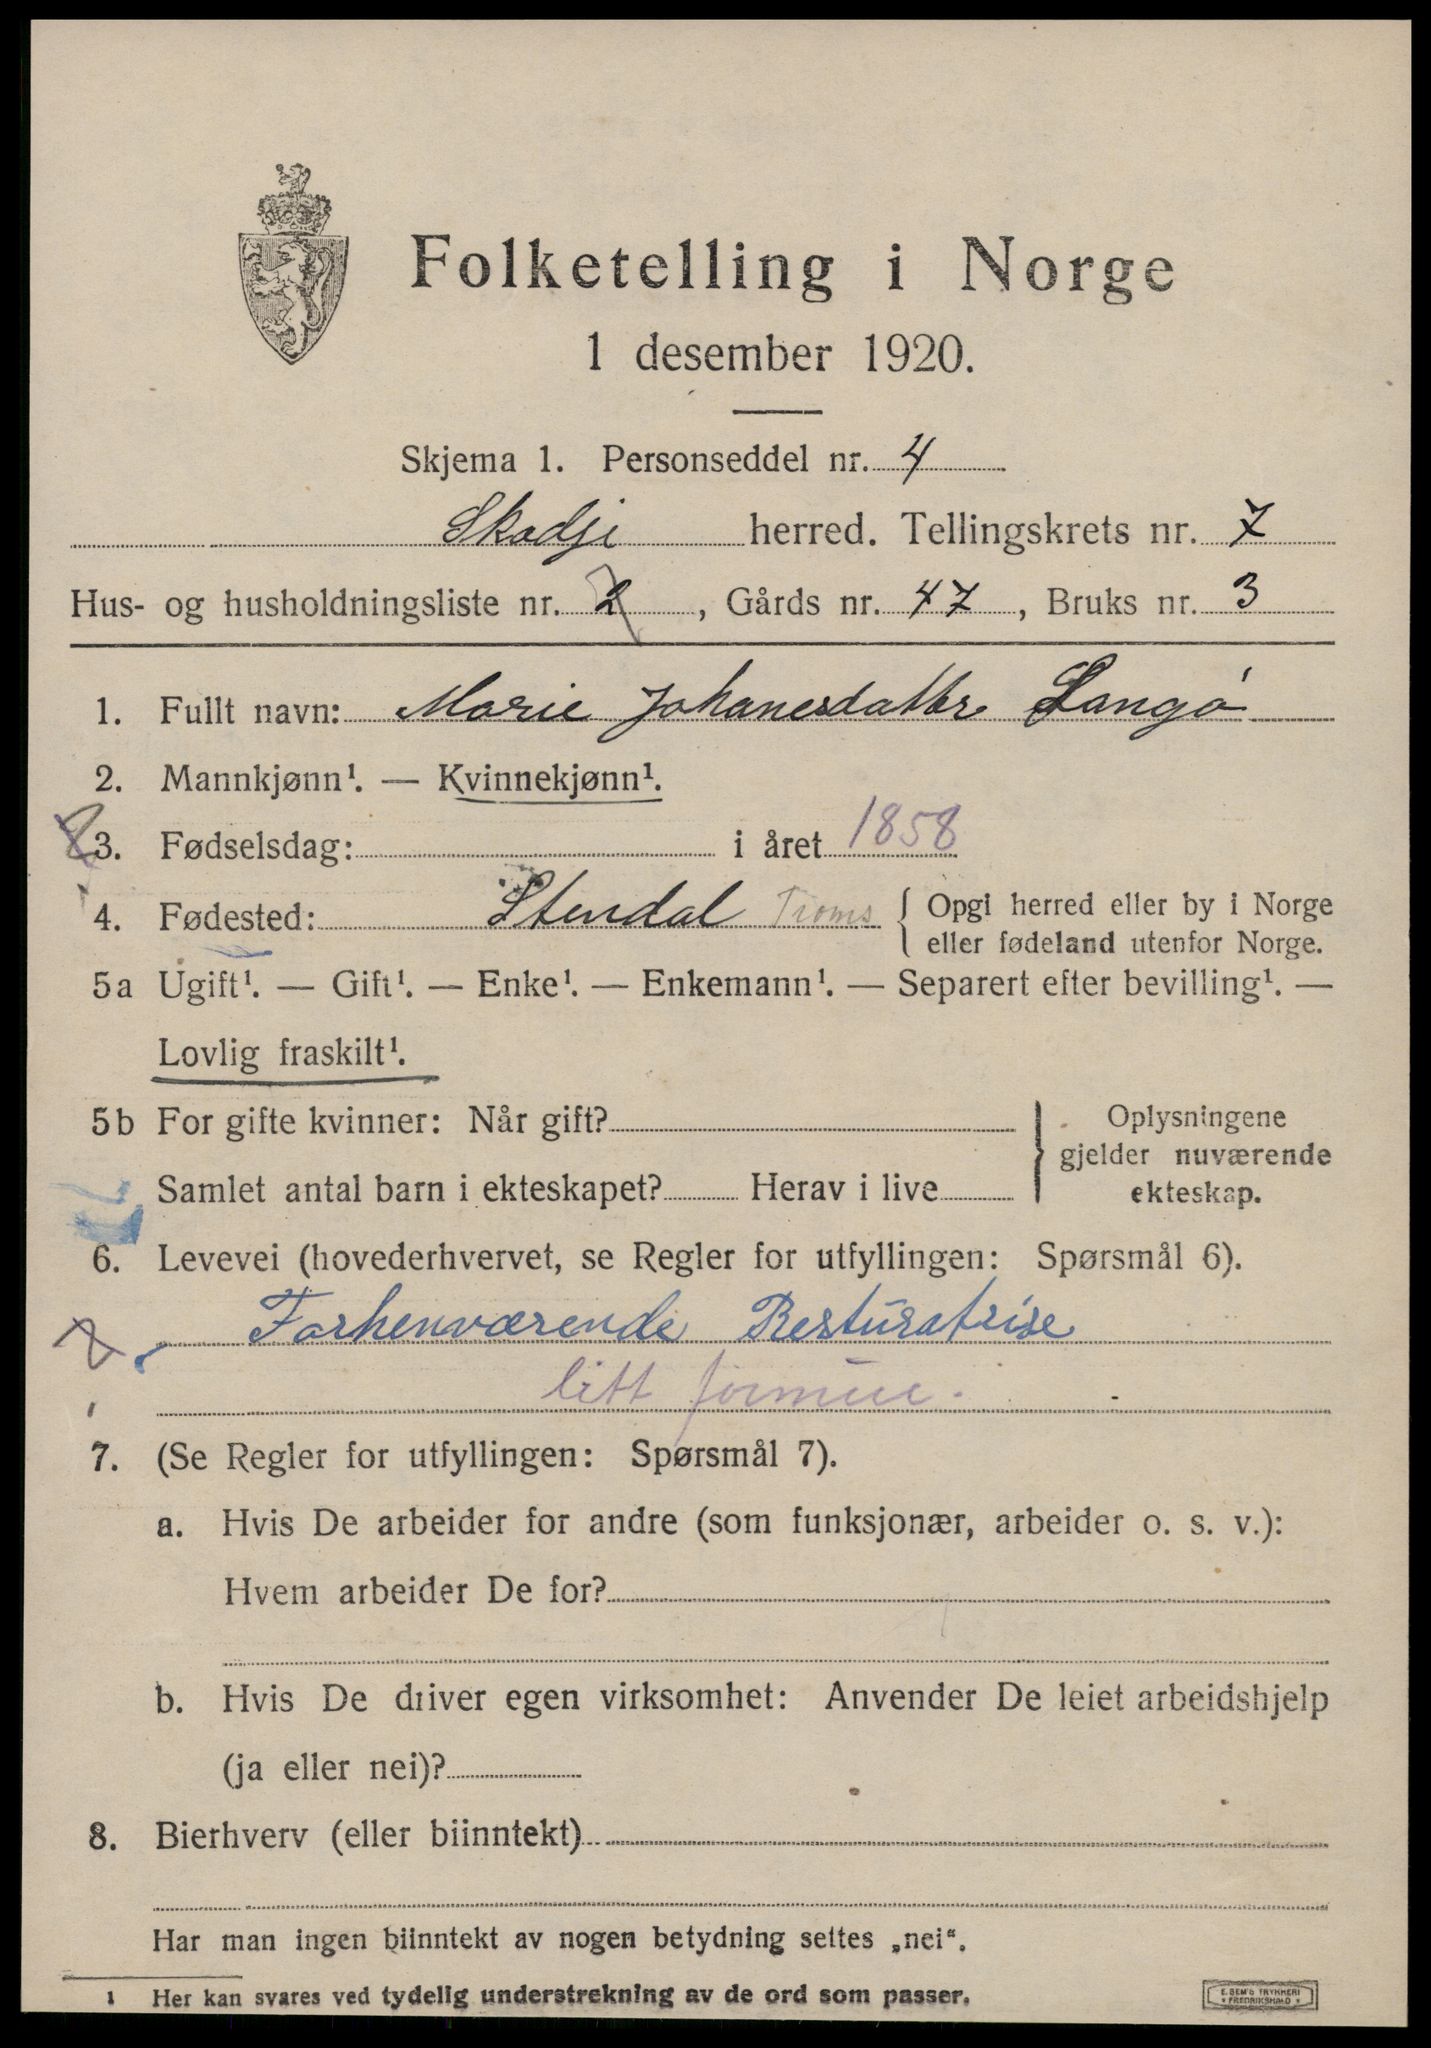 Folketelling i Norge
1 desember 1920.
Skjema 1. Personseddel nr. 4
Skodje herred. Tellingskrets nr. 7
Hus- og husholdningsliste nr. 2, Gårds nr. 47, Bruks nr. 3
1. Fullt navn: Marie Johanesdatter Langø
2. Mannkjønn¹. — Kvinnekjønn¹.
3. Fødselsdag: i året 1858
4. Fødested: Stendal Troms { Opgi herred eller by i Norge
eller fødeland utenfor Norge.
5a Ugift¹. — Gift¹. — Enke¹. — Enkemann¹. — Separert efter bevilling¹. —
Lovlig fraskilt¹.
5b For gifte kvinner: Når gift?
Samlet antal barn i ekteskapet? Herav i live
} Oplysningene
gjelder nuværende
ekteskap.
6. Levevei (hovederhvervet, se Regler for utfyllingen: Spørsmål 6).
Forhenværende Resturatrise
litt formue.
7. (Se Regler for utfyllingen: Spørsmål 7).
a. Hvis De arbeider for andre (som funksjonær, arbeider o. s. v.):
Hvem arbeider De for?
b. Hvis De driver egen virksomhet: Anvender De leiet arbeidshjelp
(ja eller nei)?
8. Bierhverv (eller biinntekt)
Har man ingen biinntekt av nogen betydning settes „nei“.
1 Her kan svares ved tydelig understrekning av de ord som passer.
E. SEM'S TRYKKERI
FREDRIKSHALD